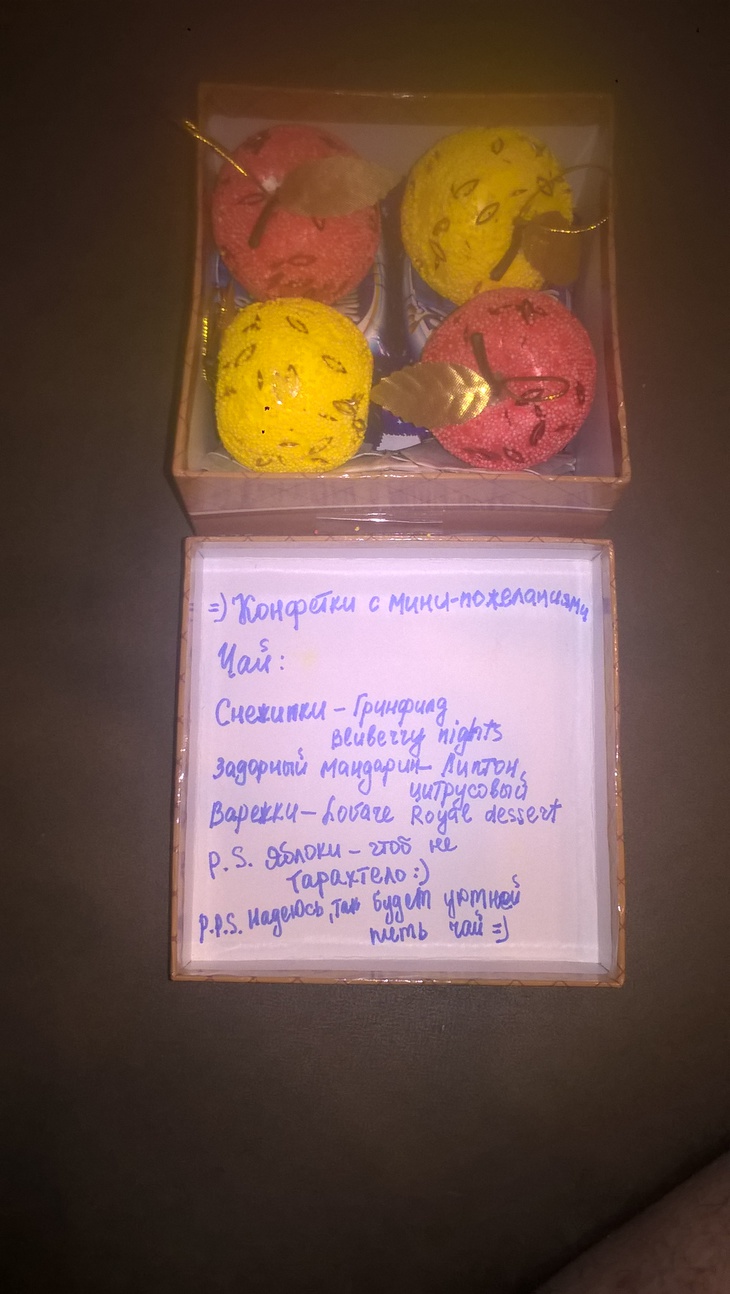 =) Конфетки с мини-пожеланиями
Чай:
Снежинки - Гринфилд
Blueberry nights
Задорный мандарин - Липтон,
цитрусовый
Варежки - Lovare Royal dessert
P.S. Яблоки - чтоб не
тарахтело :)
P.P.S. Надеюсь, так будет уютней
пить чай =)